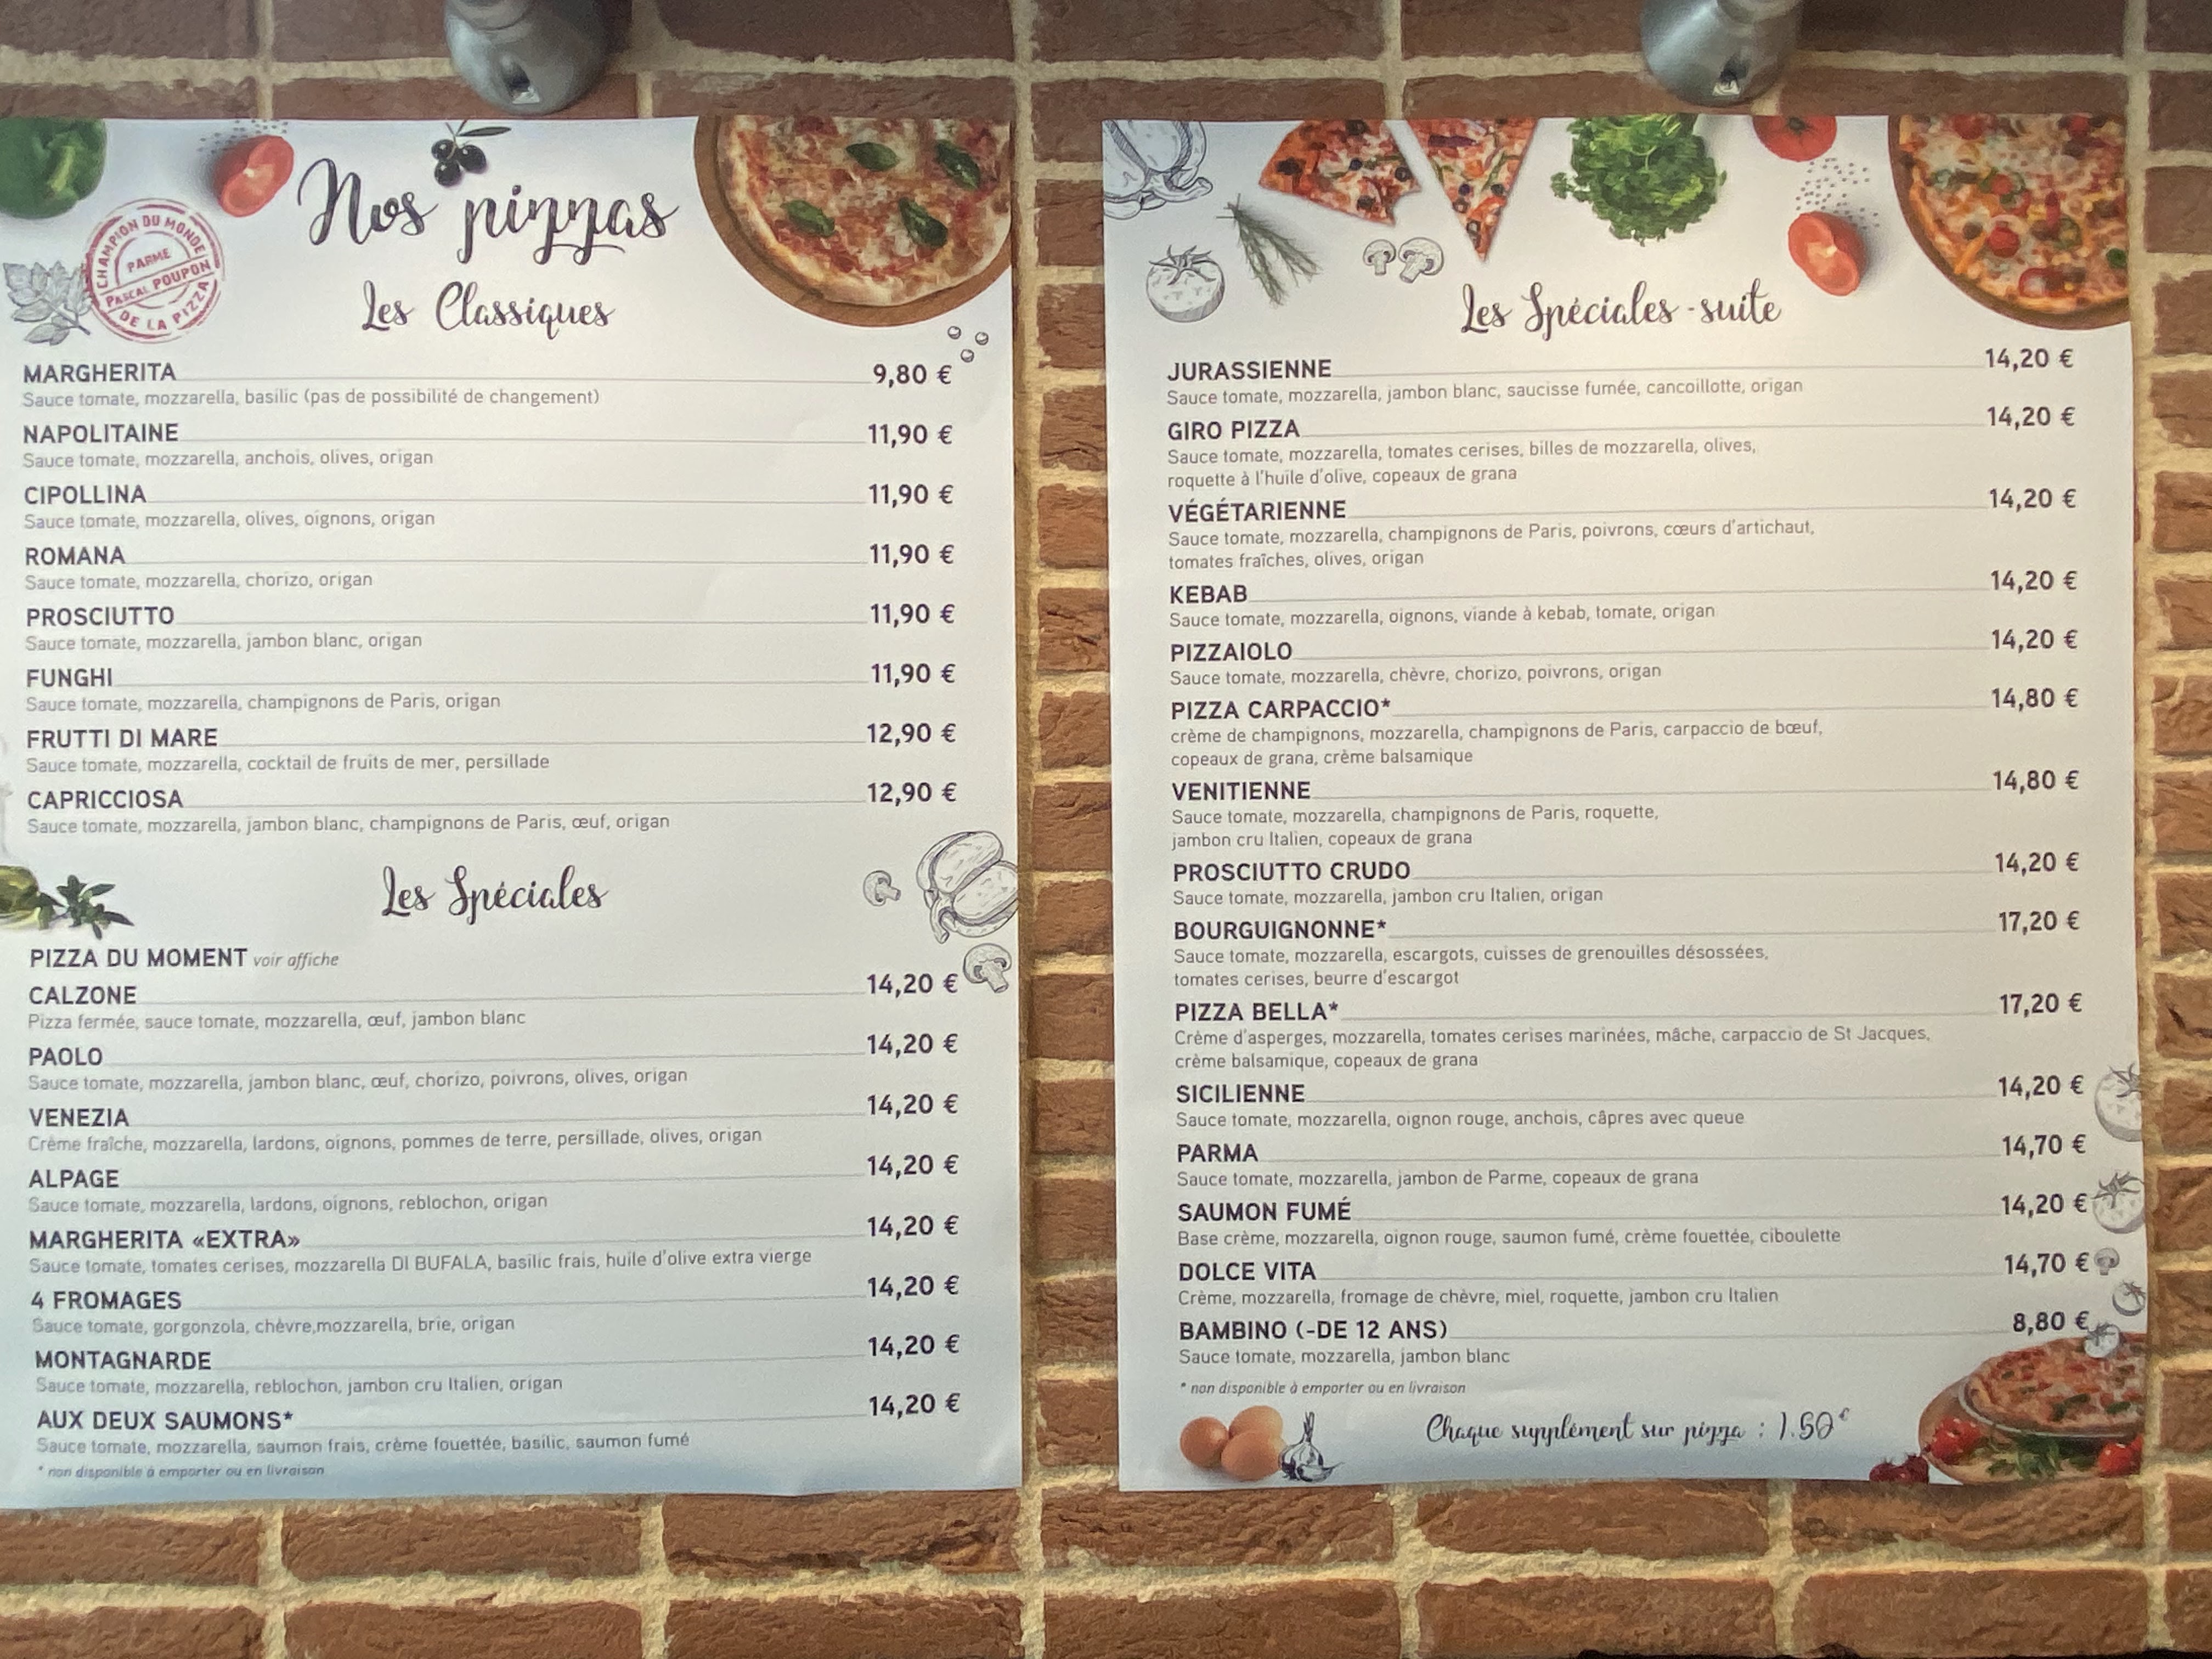 Nos pizzas
CHAMPION DU MONDE
PARME
PASCAL POUPON
DE LA PIZZA
Les Classiques
MARGHERITA 9,80 €
Sauce tomate, mozzarella, basilic (pas de possibilité de changement)
NAPOLITAINE 11,90 €
Sauce tomate, mozzarella, anchois, olives, origan
CIPOLLINA 11,90 €
Sauce tomate, mozzarella, olives, oignons, origan
ROMANA 11,90 €
Sauce tomate, mozzarella, chorizo, origan
PROSCIUTTO 11,90 €
Sauce tomate, mozzarella, jambon blanc, origan
FUNGHI 11,90 €
Sauce tomate, mozzarella, champignons de Paris, origan
FRUTTI DI MARE 12,90 €
Sauce tomate, mozzarella, cocktail de fruits de mer, persillade
CAPRICCIOSA 12,90 €
Sauce tomate, mozzarella, jambon blanc, champignons de Paris, œuf, origan
Les Spéciales
PIZZA DU MOMENT voir affiche
CALZONE 14,20 €
Pizza fermée, sauce tomate, mozzarella, œuf, jambon blanc
PAOLO 14,20 €
Sauce tomate, mozzarella, jambon blanc, œuf, chorizo, poivrons, olives, origan
VENEZIA 14,20 €
Crème fraîche, mozzarella, lardons, oignons, pommes de terre, persillade, olives, origan
ALPAGE 14,20 €
Sauce tomate, mozzarella, lardons, oignons, reblochon, origan
MARGHERITA «EXTRA» 14,20 €
Sauce tomate, tomates cerises, mozzarella DI BUFALA, basilic frais, huile d'olive extra vierge
4 FROMAGES 14,20 €
Sauce tomate, gorgonzola, chèvre,mozzarella, brie, origan
MONTAGNARDE 14,20 €
Sauce tomate, mozzarella, reblochon, jambon cru Italien, origan
AUX DEUX SAUMONS* 14,20 €
Sauce tomate, mozzarella, saumon frais, crème fouettée, basilic, saumon fumé
* non disponible à emporter ou en livraison
Les Spéciales - suite
JURASSIENNE 14,20 €
Sauce tomate, mozzarella, jambon blanc, saucisse fumée, cancoillotte, origan
GIRO PIZZA 14,20 €
Sauce tomate, mozzarella, tomates cerises, billes de mozzarella, olives,
roquette à l'huile d'olive, copeaux de grana
VÉGÉTARIENNE 14,20 €
Sauce tomate, mozzarella, champignons de Paris, poivrons, cœurs d'artichaut,
tomates fraîches, olives, origan
KEBAB 14,20 €
Sauce tomate, mozzarella, oignons, viande à kebab, tomate, origan
PIZZAIOLO 14,20 €
Sauce tomate, mozzarella, chèvre, chorizo, poivrons, origan
PIZZA CARPACCIO* 14,80 €
crème de champignons, mozzarella, champignons de Paris, carpaccio de bœuf,
copeaux de grana, crème balsamique
VENITIENNE 14,80 €
Sauce tomate, mozzarella, champignons de Paris, roquette,
jambon cru Italien, copeaux de grana
PROSCIUTTO CRUDO 14,20 €
Sauce tomate, mozzarella, jambon cru Italien, origan
BOURGUIGNONNE* 17,20 €
Sauce tomate, mozzarella, escargots, cuisses de grenouilles désossées,
tomates cerises, beurre d'escargot
PIZZA BELLA* 17,20 €
Crème d'asperges, mozzarella, tomates cerises marinées, mâche, carpaccio de St Jacques,
crème balsamique, copeaux de grana
SICILIENNE 14,20 €
Sauce tomate, mozzarella, oignon rouge, anchois, câpres avec queue
PARMA 14,70 €
Sauce tomate, mozzarella, jambon de Parme, copeaux de grana
SAUMON FUMÉ 14,20 €
Base crème, mozzarella, oignon rouge, saumon fumé, crème fouettée, ciboulette
DOLCE VITA 14,70 €
Crème, mozzarella, fromage de chèvre, miel, roquette, jambon cru Italien
BAMBINO (-DE 12 ANS) 8,80 €
Sauce tomate, mozzarella, jambon blanc
* non disponible à emporter ou en livraison
Chaque supplément sur pizza : 1.50€